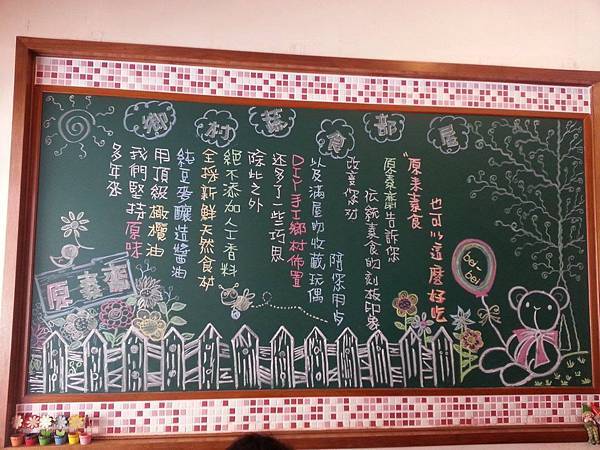 鄉村蔬食部屋
"原來素食
也可以這麼好吃
原素齋告訴你
傳統素食的刻板印象
改變您功
請您用點
以及滿屋的收藏玩偶
DIY手工鄉村佈置
還多了一些巧思
除此之外
絕不添加人工香料
全採新鮮天然食材
純豆麥釀造醬油
用頂級橄欖油
我們堅持原味
多年來
原素齋
bei-bei